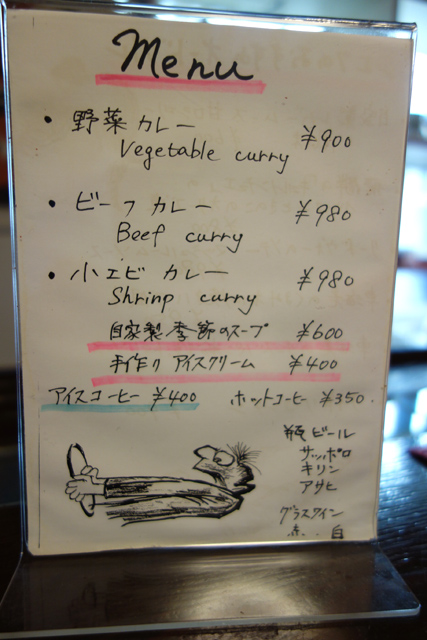 Menu
・野菜カレー ¥900
Vegetable curry
・ビーフカレー ¥980
Beef curry
・小エビカレー ¥980
Shrinp curry
自家製季節のスープ ¥600
手作りアイスクリーム ¥400
アイスコーヒー ¥400 ホットコーヒー ¥350
瓶ビール
サッポロ
キリン
アサヒ
グラスワイン
赤．．白